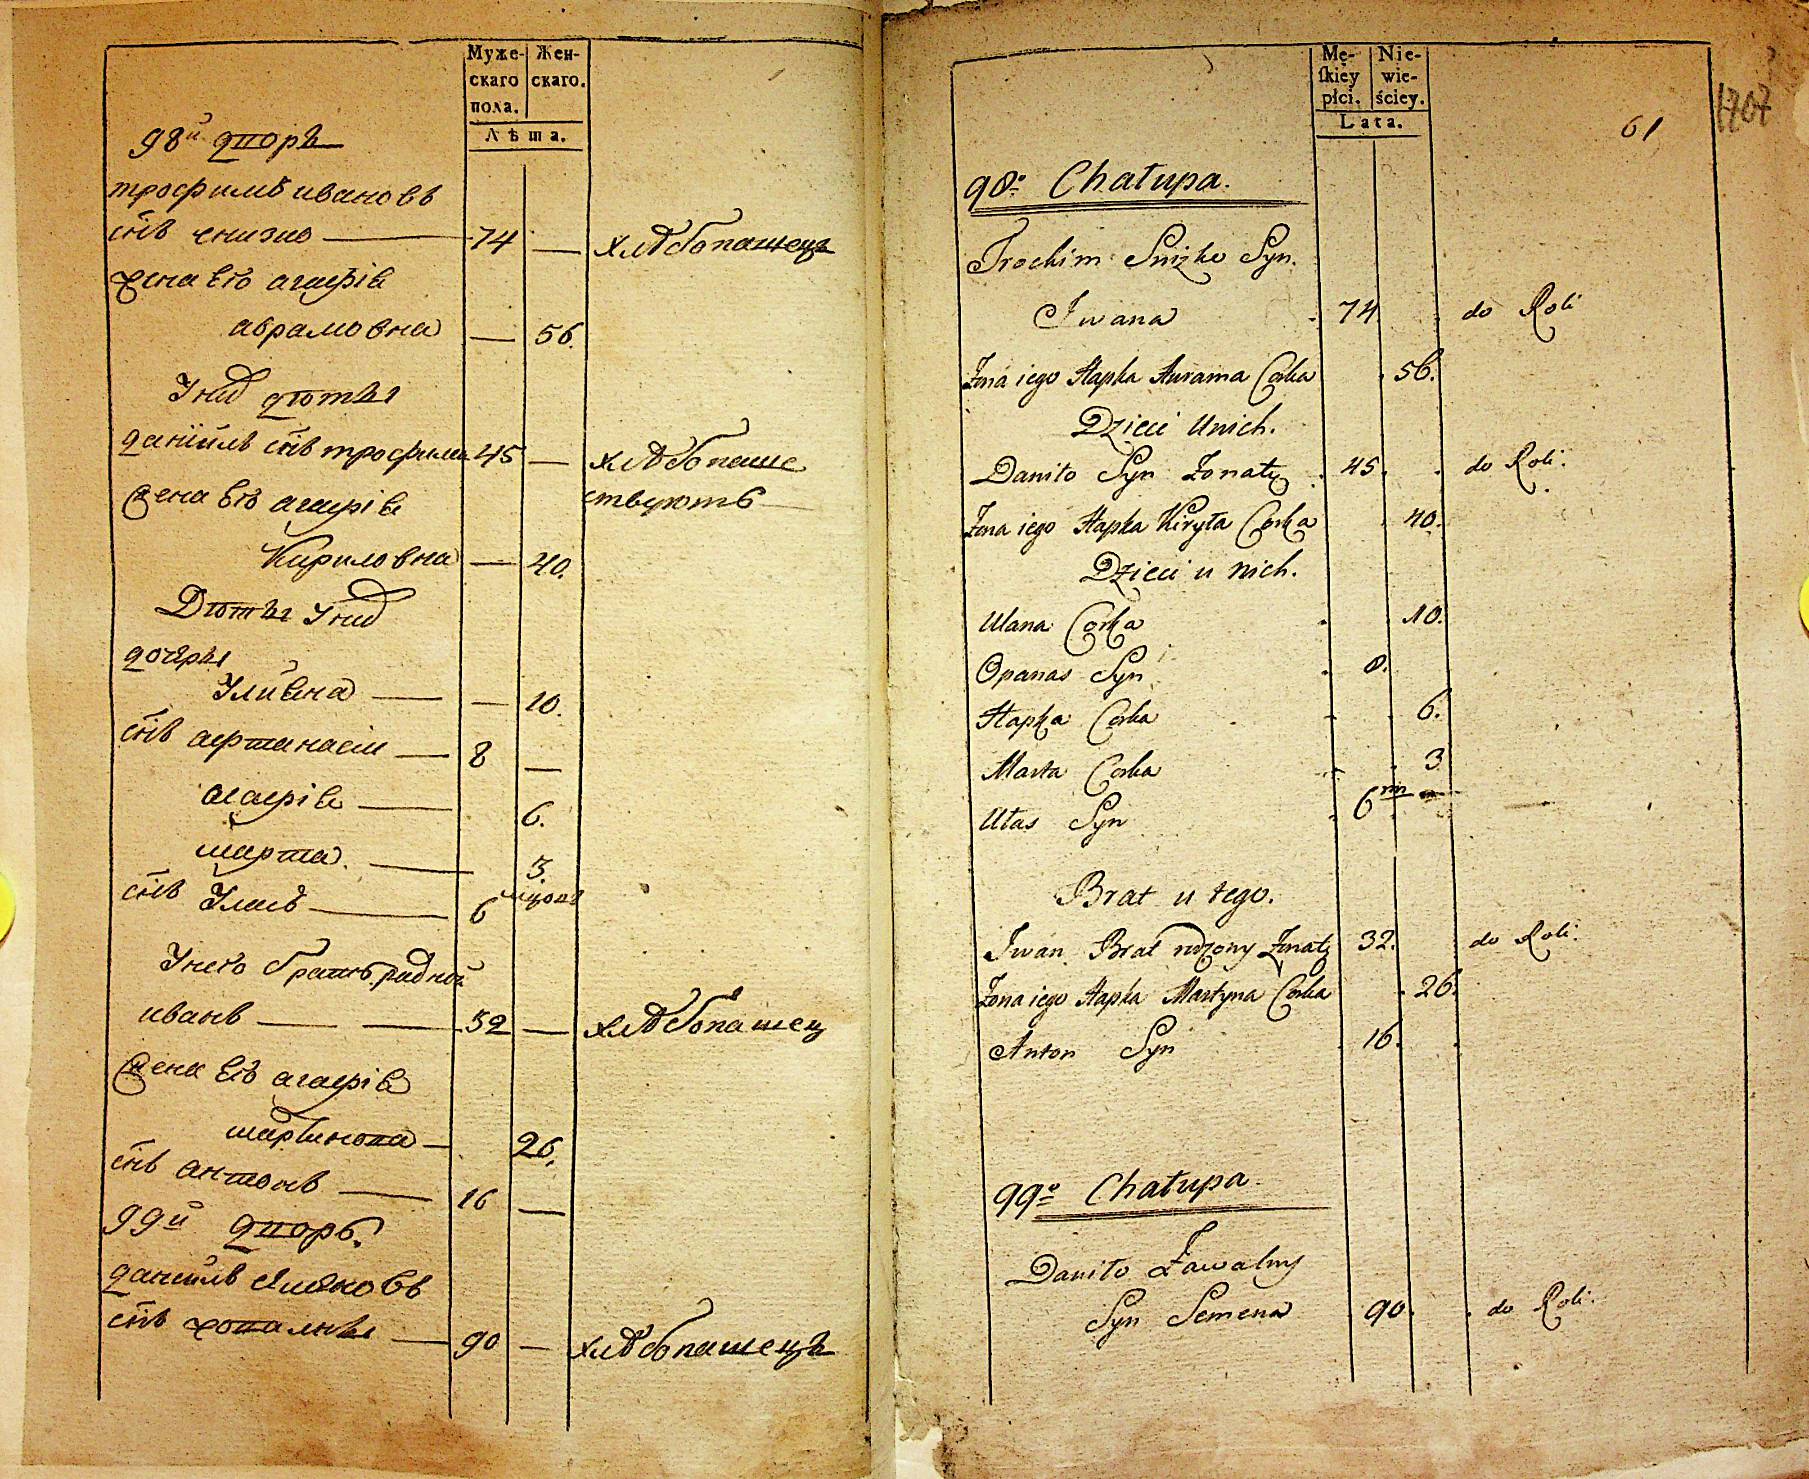 Муже-
скаго
пола.
Жен-
скаго.
Лѣта.
98й дворъ
трофимъ ивановъ
снъ снизко 74 — хлѣбопашецъ
жена Его агафія
абрамовна — 56.
У нихъ дѣти
даніилъ снъ трофима 45 — хлѣбопаше
ствуютъ
жена Его агафія
Кириловна — 40.
Дѣти У нихъ
дочери
Улияна — 10.
снъ афтанасій 8 —
агафія 6.
марта. 3.
снъ Уласъ 6 мцовъ
У него братъ радной
иванъ 32 — хлѣбопашец
жена Его агафія
мартинова 26.
снъ антонъ 16 —
99й дворъ.
данило
снъ 90 — хлѣбопашецъ
Mę-
skiey
płci.
Nie-
wie-
ściey.
Lata.
61
1707
98e Chałupa.
Trochim Sniżko Syn
Iwana 74. do Roli
Żona iego Hapka Aurama Corka 56.
Dzieci Unich.
Daniło Syn Żonaty 45. do Roli.
Żona iego Hapka Kiryła Corka 40.
Dzieci u nich.
Ulana Corka 10.
Opanas Syn 8.
Hapka Corka 6.
Marta Corka 3
Ułas Syn 6 mn
Brat u tego.
Iwan Brat rodzony Żonaty 32. do Roli.
Żona iego Hapka Martyna Corka 26.
Anton Syn 16.
99e Chałupa.
Daniło Zawalny
Syn Semena 90. do Roli.